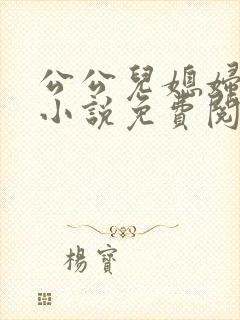 公公兒媳婦
小說免費閱
楊寶